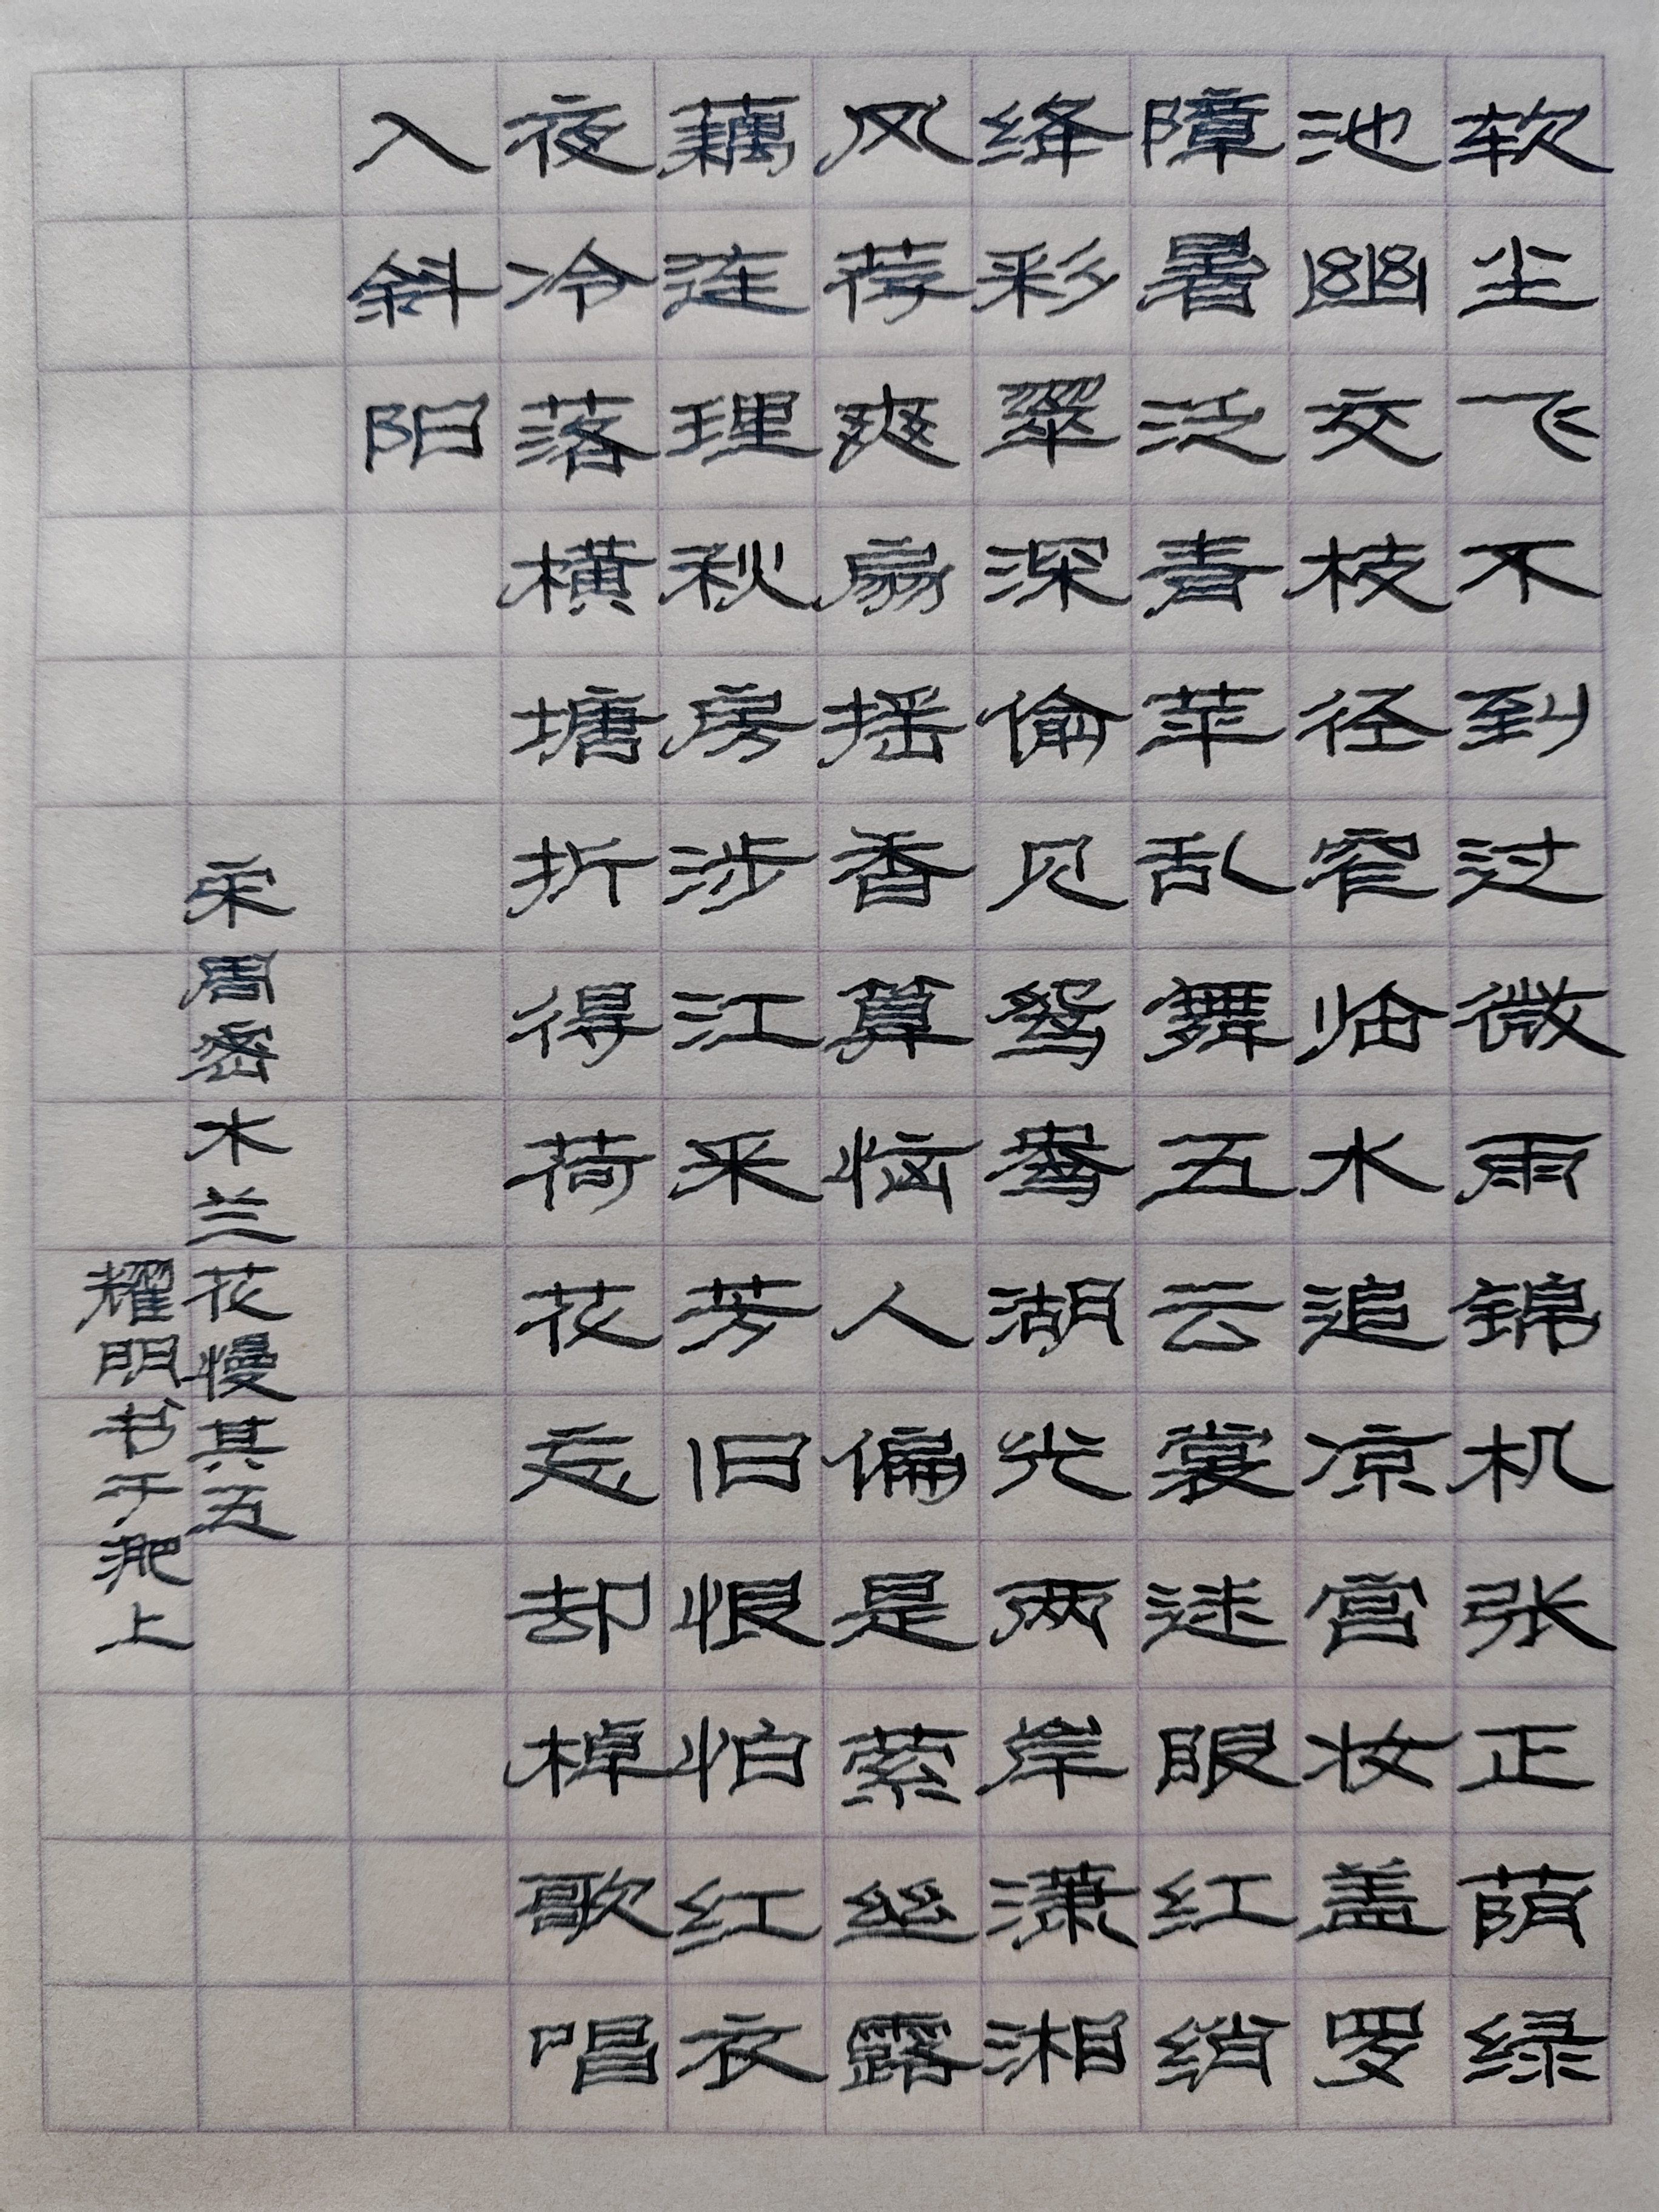 软尘飞不到过微雨锦机张正荫绿
池幽交枝径窄临水追凉宫妆盖罗
障暑泛青苹乱舞五云裳迷眼红绡
绛彩翠深偷见鸳鸯湖光两岸潇湘
风荐爽扇摇香算恼人偏是萦丝露
藕连理秋房涉江采芳旧恨怕红衣
夜冷落横塘折得荷花忘却棹歌唱
入斜阳
宋周密木兰花慢其五
耀明书于淝上